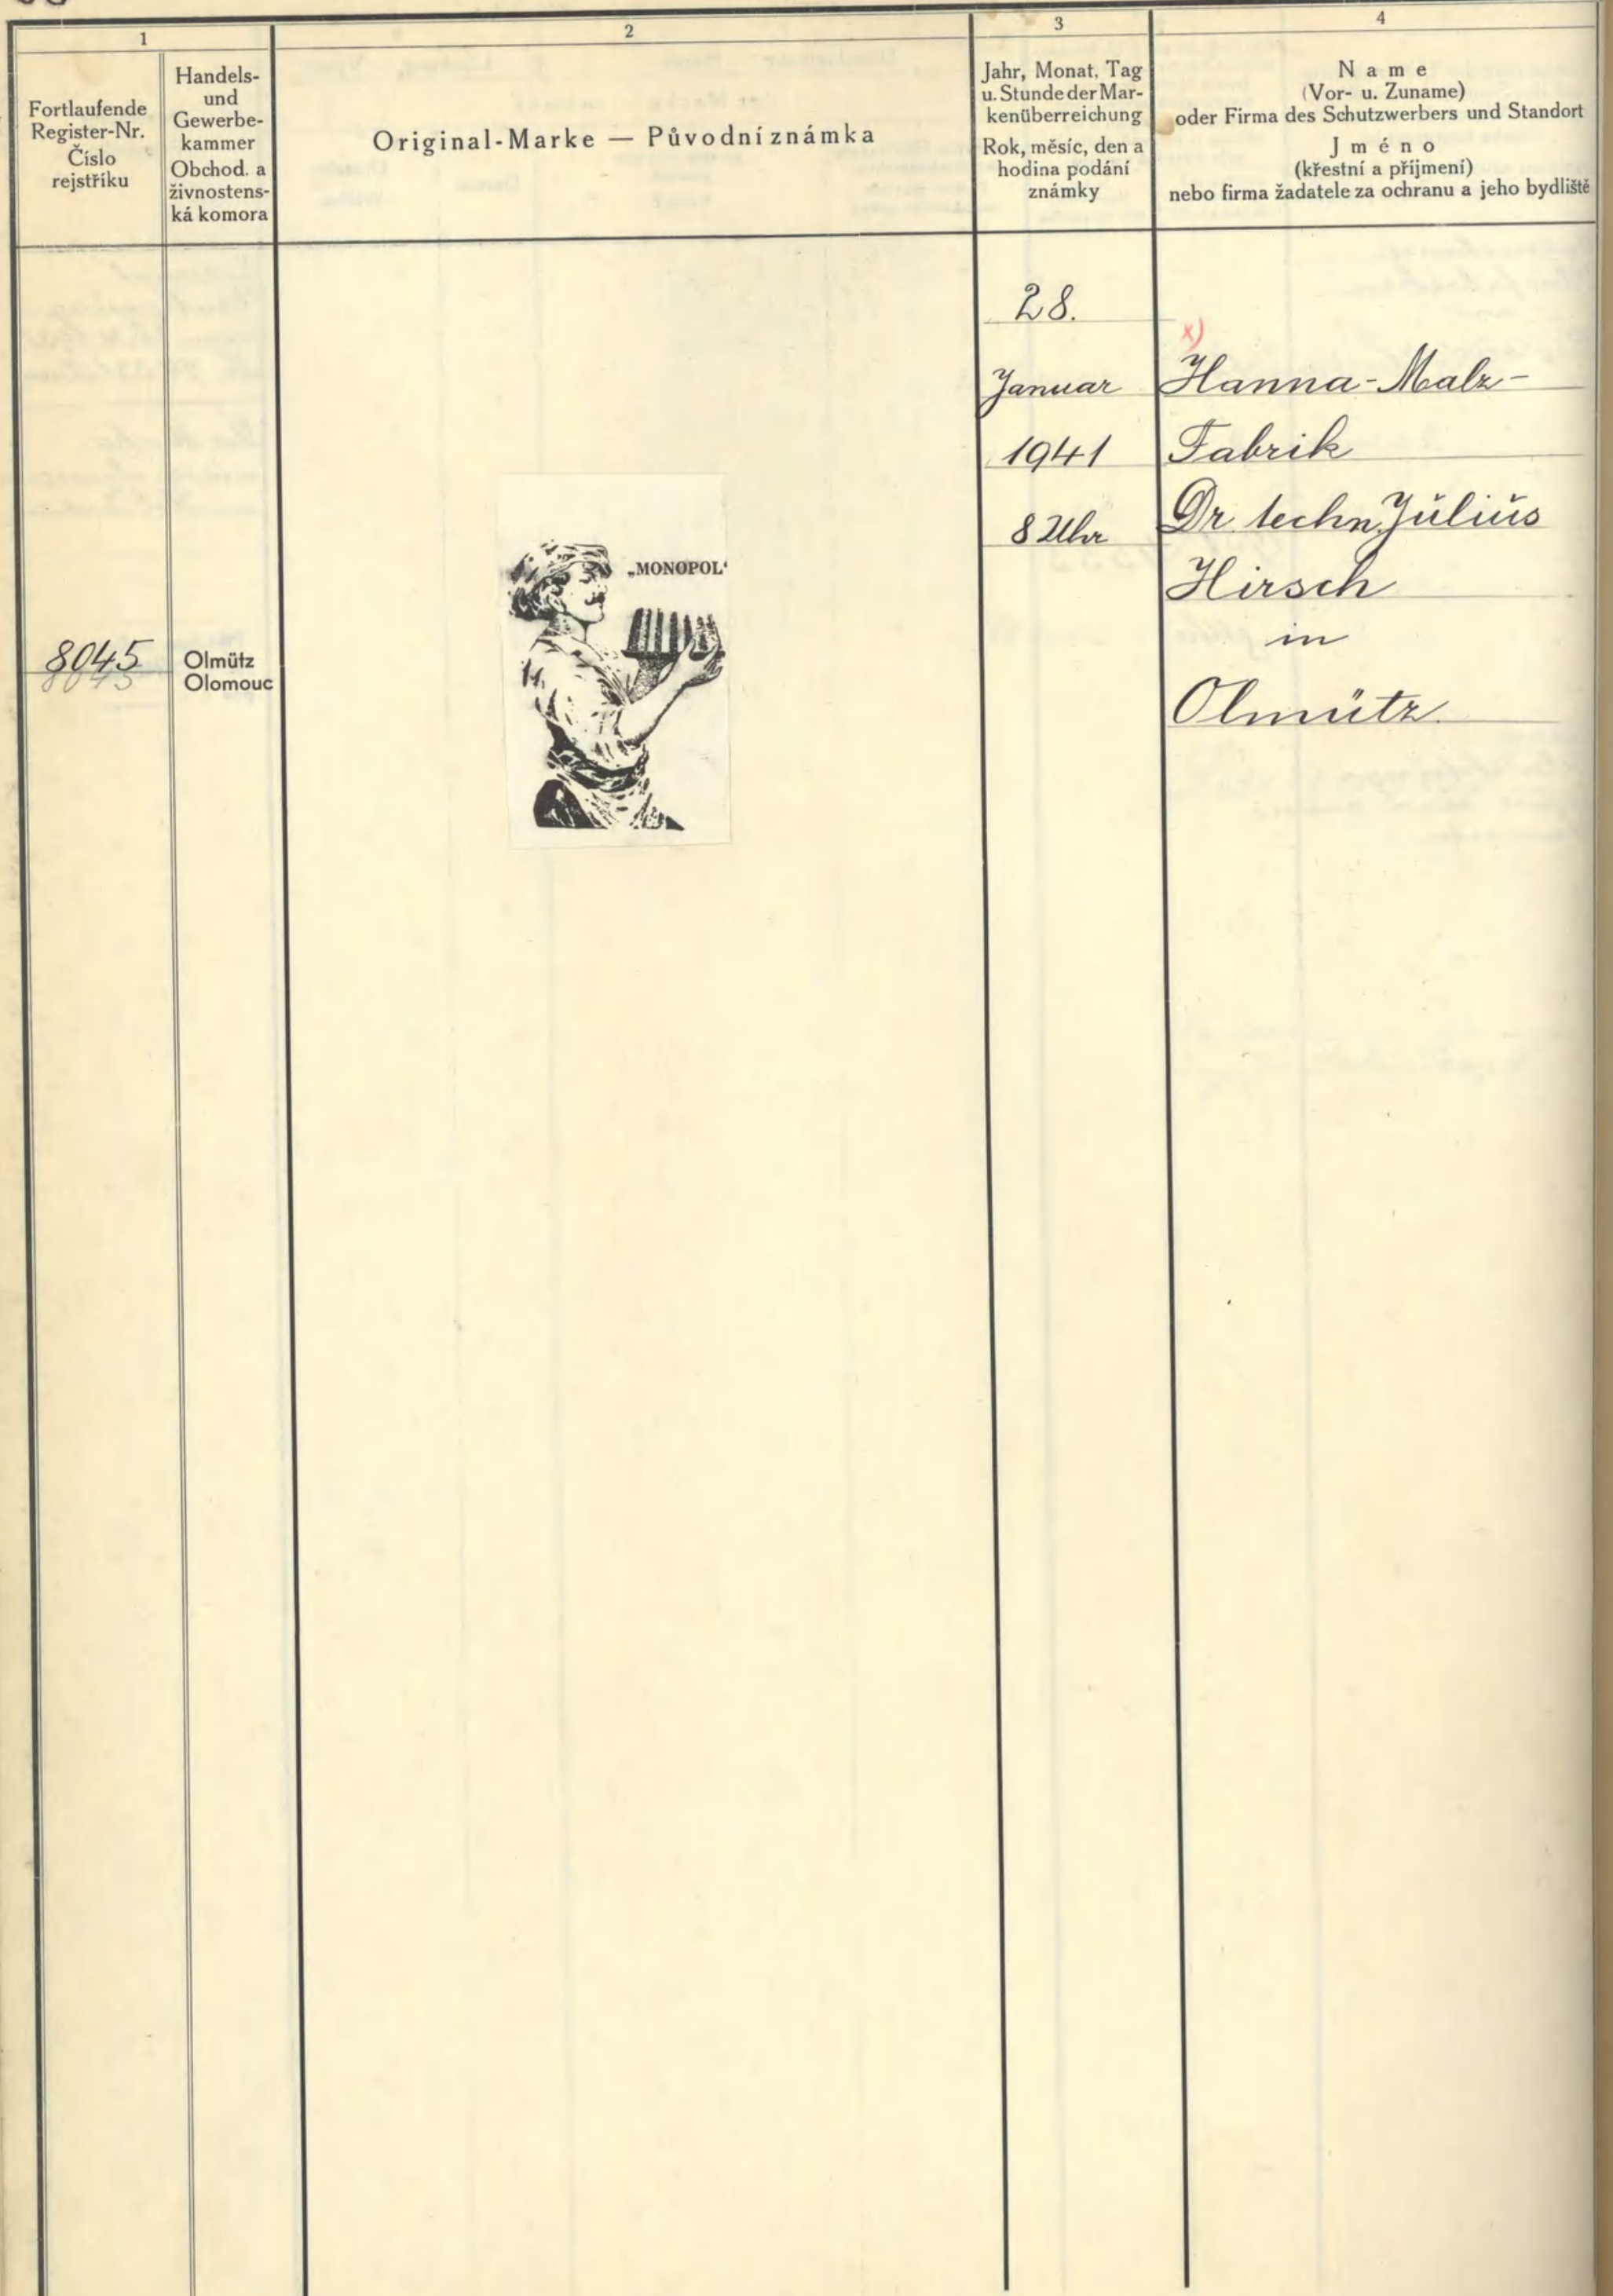 1
Fortlaufende
Register-Nr.
Číslo
rejstříku
Handels-
und
Gewerbe-
kammer
Obchod. a
živnostens-
ká komora
2
Original-Marke — Původní známka
3
Jahr, Monat, Tag
u. Stunde der Mar-
kenüberreichung
Rok, měsíc, den a
hodina podání
známky
4
Name
(Vor- u. Zuname)
oder Firma des Schutzwerbers und Standort
Jméno
(křestní a příjmení)
nebo firma žadatele za ochranu a jeho bydliště
8045
8045
Olmütz
Olomouc
„MONOPOL‘
28.
Januar
1941
8 Uhr
x)
Hanna-Malz-
Fabrik
Dr. techn. Július
Hirsch
in
Olmütz